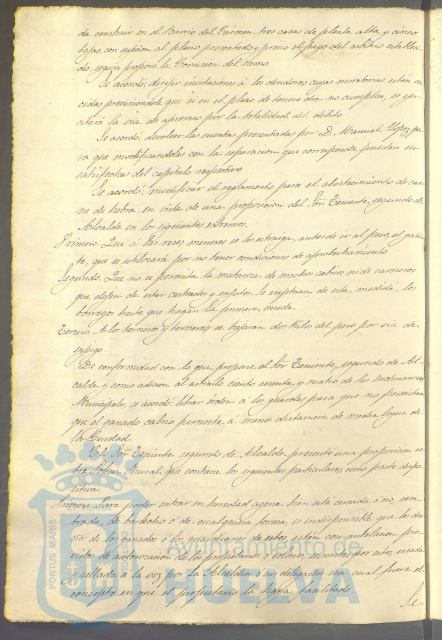 da construir en el Barrio del Carmen tres casas de planta alta y cinco
bajas, con sujecion al plano presentado y previo el pago del arbitrio estableci-
do, segun propone la Comision del ramo.
Se acordó: dirijir invitaciones á los deudores cuyas moratorias estan ven-
cidas previniendole que si en el plazo de tercero dia no cumplen, se ejer-
citará la via de apremio por la totalidad del débito
Se acordó: devolver las cuentas presentadas por D. Manuel Lopez pa-
ra que modificandolas con la separacion que corresponde, puedan ser
satisfechas del capítulo respectivo
Se acordó: modificar el reglamento para el abastecimiento de car-
ne de hebra, en vista de una proposicion del Sor. Teniente, segundo de
Alcalde en los siguientes estremos.
Primero. Que á las reses menores se les estraiga, antes de ir al peso, el gaz
te, que se utilizará por no tener condiciones de aprobechamiento
Segundo. Que no se permita la matanza de machos cabrios ni de carneros
que dejen de estar castrados y enjutos. Se esceptuan de esta medida, los
borregos hasta que hagan la primera muda.
Tercero. A los terneros y terneras se bajarán dos kilos del peso por via de
enjugo.
De conformidad con lo que propone el Sor. Teniente, segundo de Al-
calde y como adicion al artículo ciento sesenta y cuatro de las Ordenanzas
Municipales, se acordó: librar orden á los guardas para que no permitan
que el ganado cabrio pernocte á menos distancia de media legua de
la Ciudad.
El Sor. Teniente segundo de Alcalde, presentó una proposicion so-
bre Policia Rural, que contiene los siguientes particulares, como parte dispo-
sitiva.
Primero. Para poder entrar en heredad agena, bien esté cercada ó no, sem-
brada, de barbecho ó de cualquiera forma, es indispensable que los due-
ños de los ganados ó los guardianes de estos, esten con antelacion pro-
vistos de autorizacion de los propietarios ó colonos, escritas por estos, visada
y sellada á la vez por la Alcaldia ó sus delegados, sea cual fuere el
concepto en que el propietario la haya facilitado
Se
PORTUS MARIS
Ayuntamiento
HUELVA